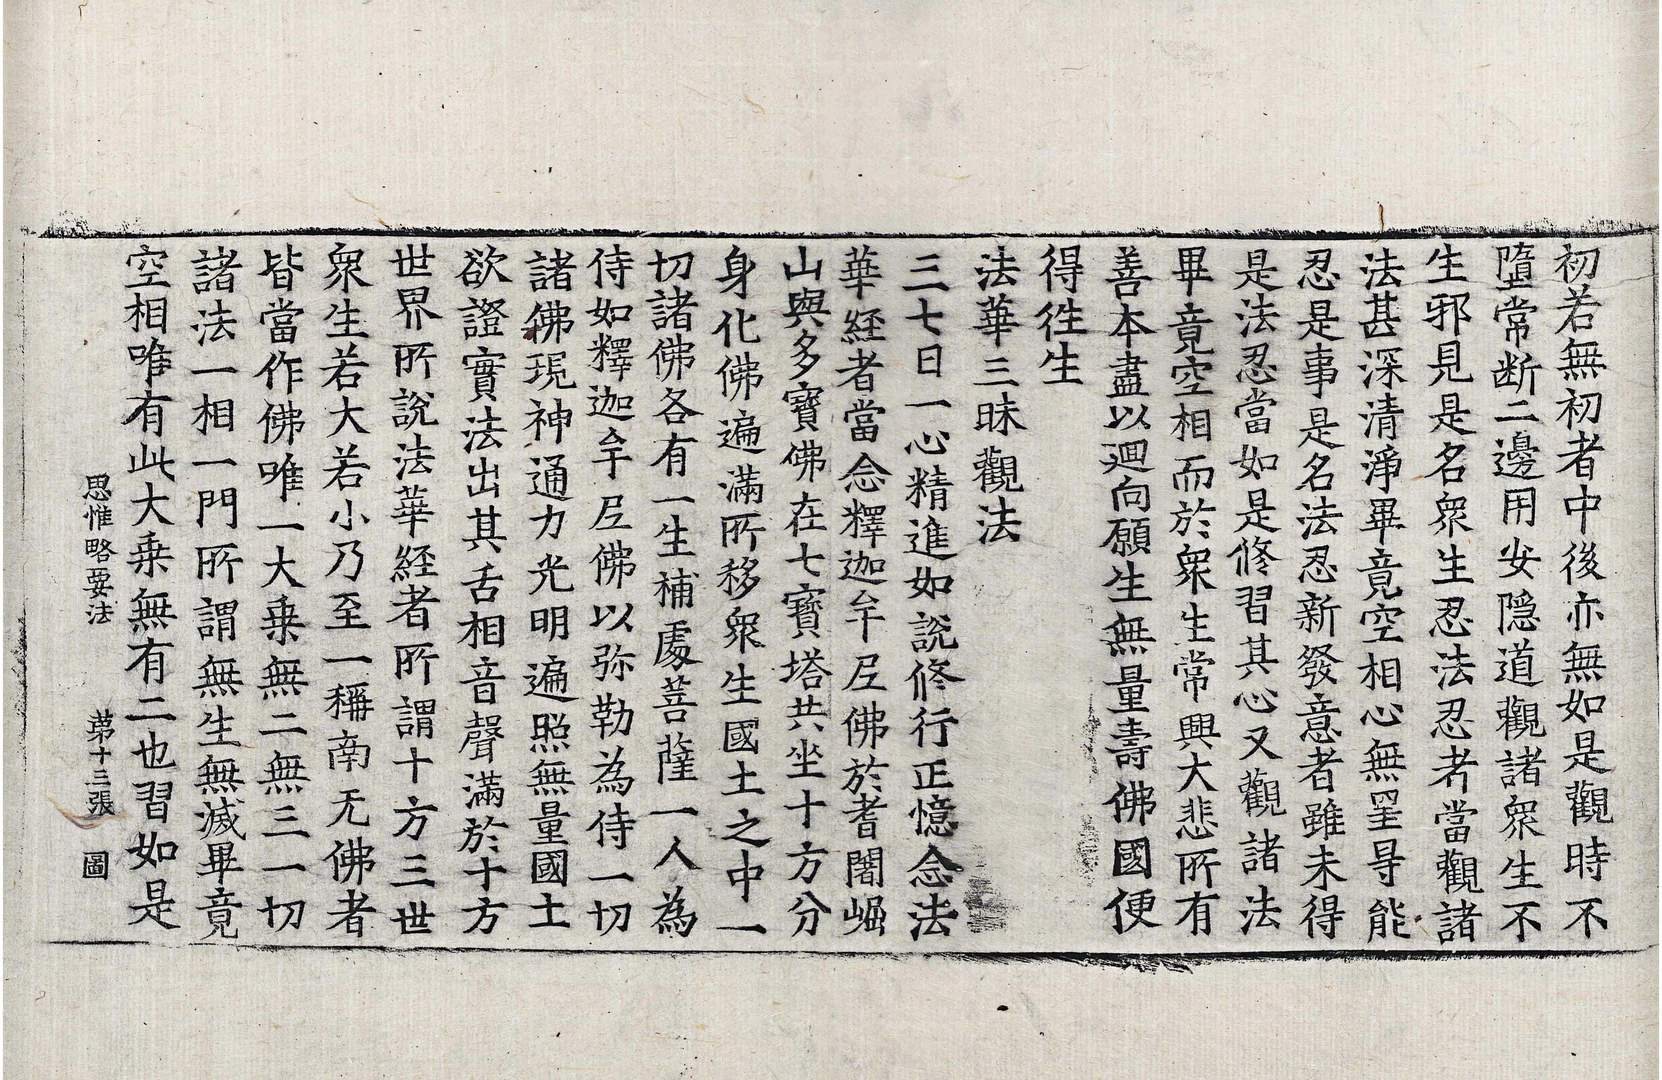 初若無初者中後亦無如是觀時不
墮常断二邊用安隱道觀諸衆生不
生邪見是名衆生忍法忍者當觀諸
法甚深清淨畢竟空相心無罣㝵能
忍是事是名法忍新發意者雖未得
是法忍當如是修習其心又觀諸法
畢竟空相而於衆生常興大悲所有
善本盡以迴向願生無量壽佛國便
得徃生
法華三昧觀法
三七日一心精進如說修行正憶念法
華經者當念釋迦牟尼佛於耆闍崛
山與多寶佛在七寶塔共坐十方分
身化佛遍滿所移衆生國土之中一
切諸佛各有一生補處菩薩一人為
侍如釋迦牟尼佛以弥勒為侍一切
諸佛現神通力光明遍照無量國土
欲證實法出其舌相音聲滿於十方
世界所說法華經者所謂十方三世
衆生若大若小乃至一稱南无佛者
皆當作佛唯一大乗無二無三一切
諸法一相一門所謂無生無滅畢竟
空相唯有此大乗無有二也習如是
思惟略要法 苐十三張 圖